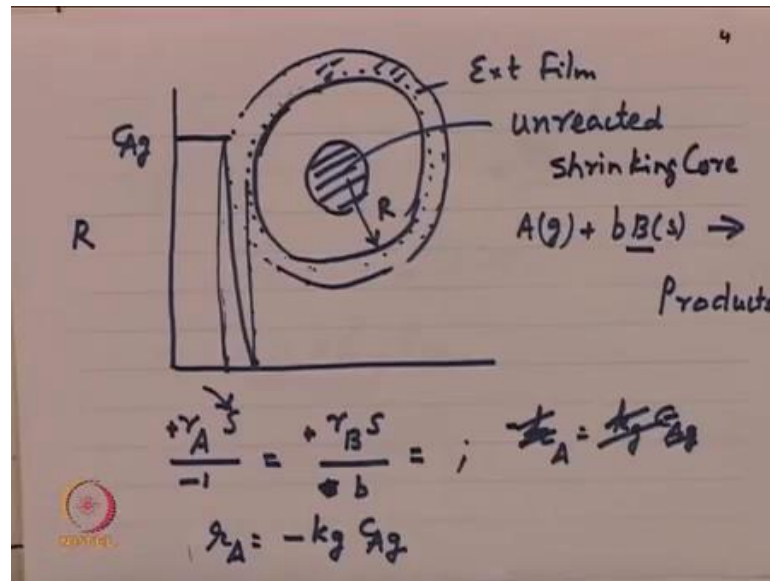 4
Ext Film
unreacted
shrinking Core
C_Ag
R
R
A(g) + b B(s) →
Products
+r_A S / -1 = +r_B S / b = ;
r_A = -kg C_Ag